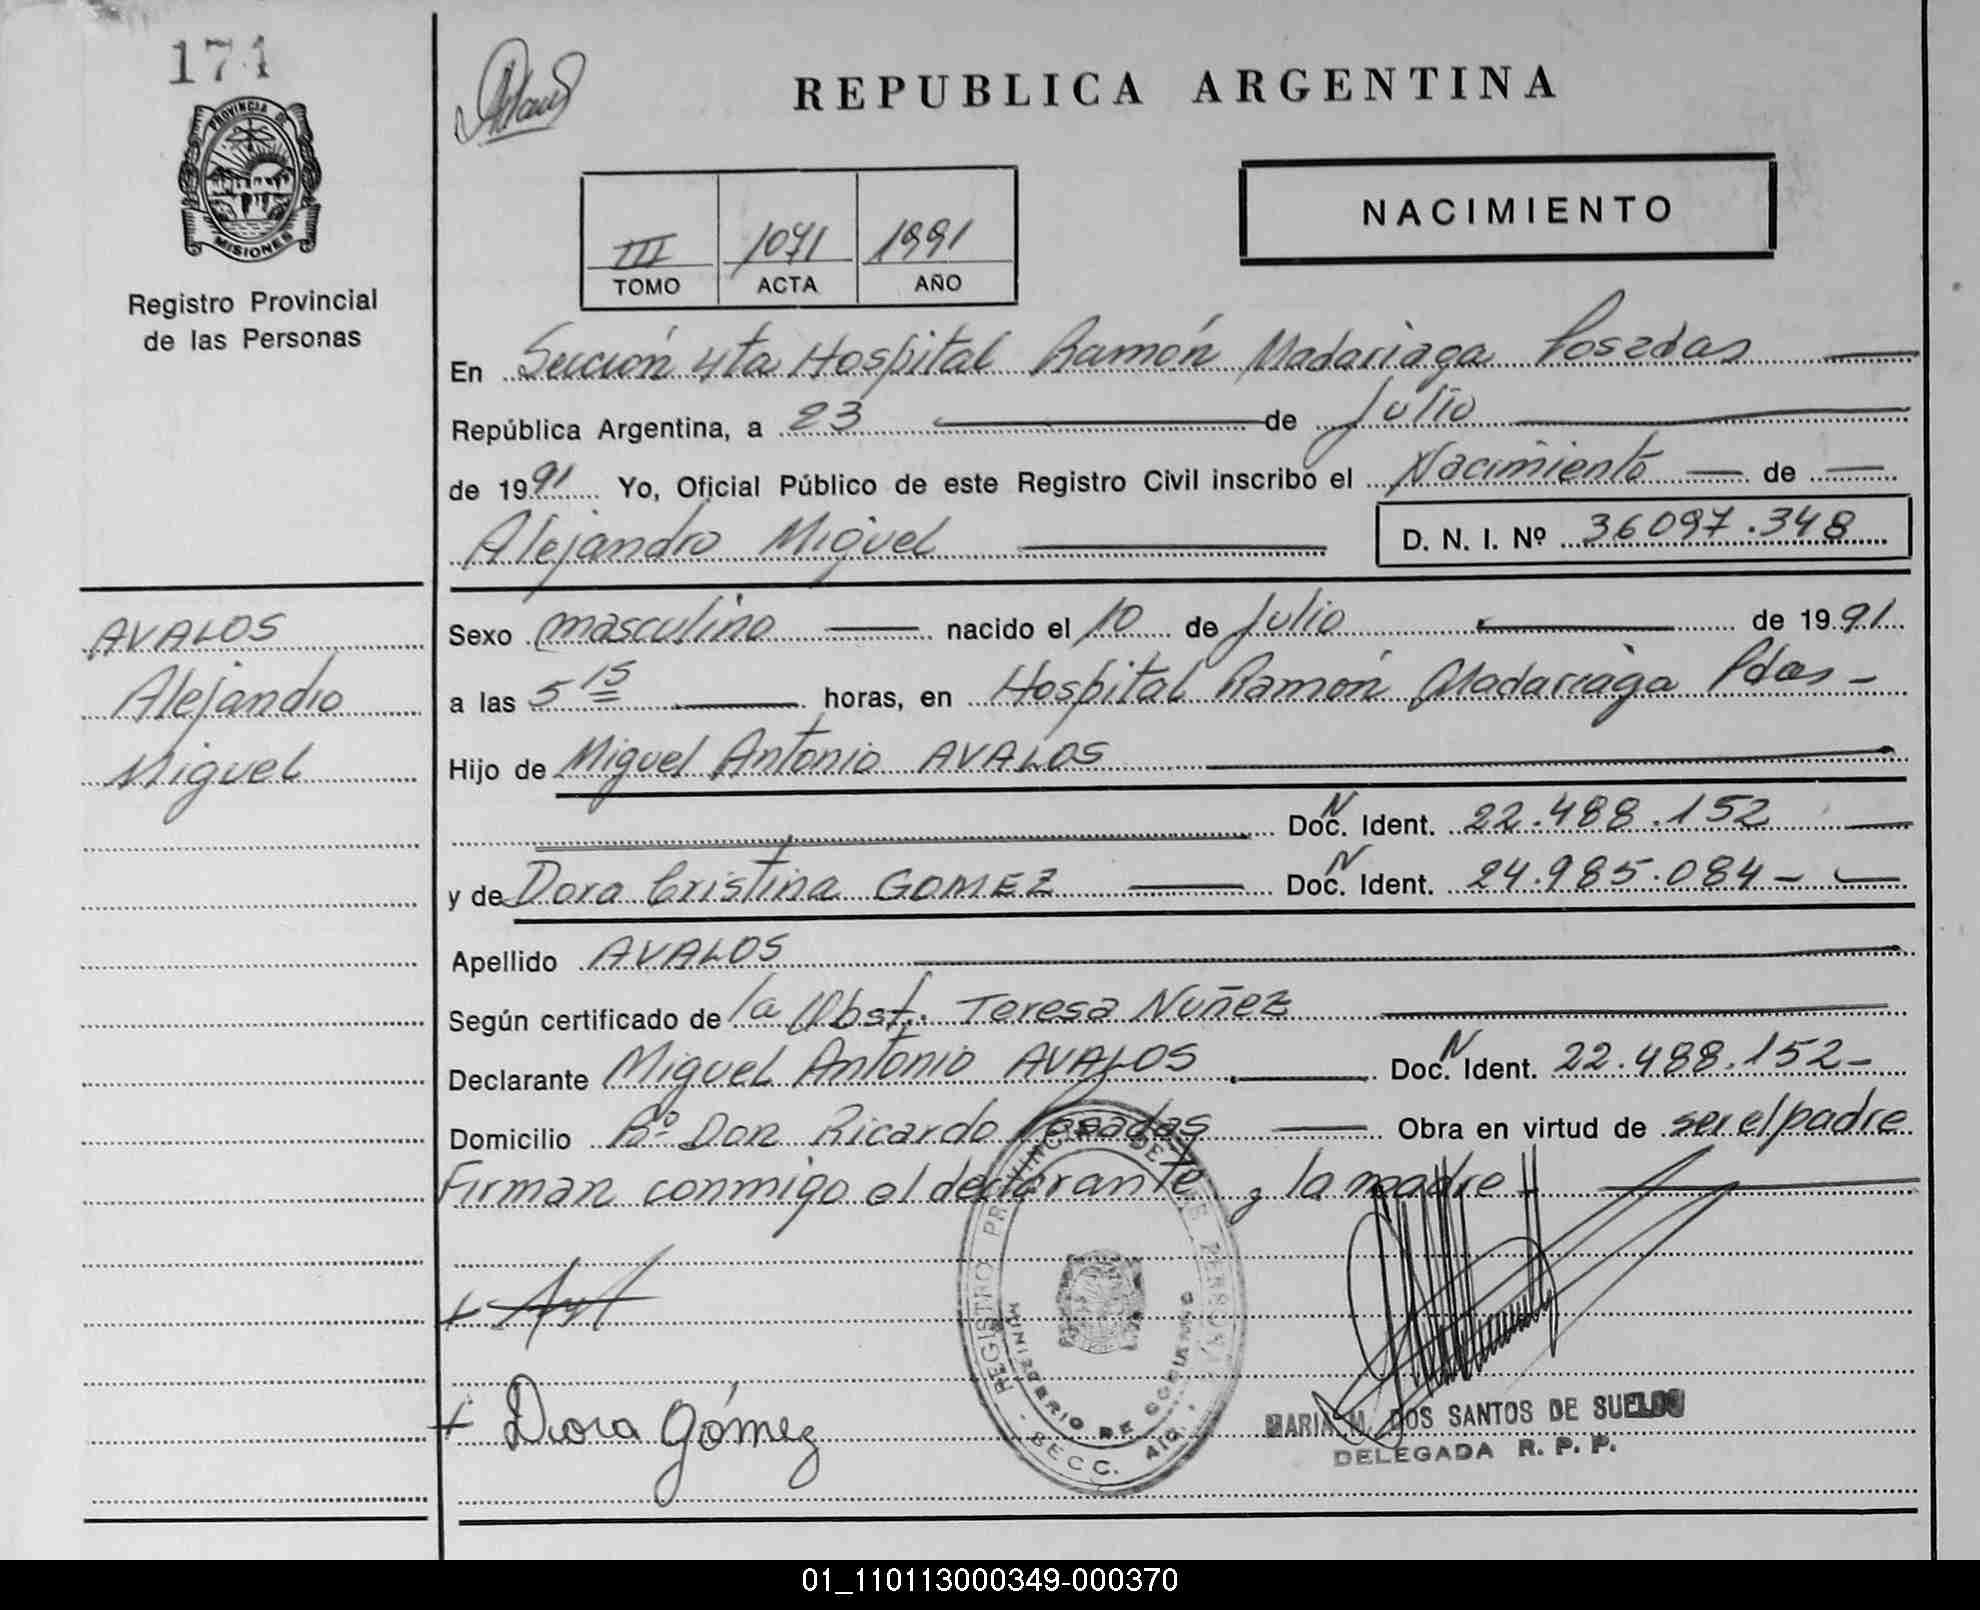 171
PROVINCIA DE
MISIONES
Registro Provincial
de las Personas
REPUBLICA ARGENTINA
NACIMIENTO
III 1071 1991
TOMO ACTA AÑO
En Sección 4ta Hospital Ramón Madariaga Posadas
República Argentina, a 23 de Julio
de 1991 Yo, Oficial Público de este Registro Civil inscribo el Nacimiento de
Alejandro Miguel D. N. I. Nº 36097.348
AVALOS
Alejandro
Miguel
Sexo masculino nacido el 10 de Julio de 1991
a las 5 15 horas, en Hospital Ramón Madariaga Pdas -
Hijo de Miguel Antonio AVALOS
Doc. N Ident. 22.488.152
y de Dora Cristina GOMEZ Doc. N Ident. 24.985.084 -
Apellido AVALOS
Según certificado de la Obst. Teresa Nuñez
Declarante Miguel Antonio AVALOS Doc. N Ident. 22.488.152 -
Domicilio Bº Don Ricardo Posadas Obra en virtud de ser el padre
Firman conmigo el declarante y la madre -
REGISTRO PROVINCIAL DE LAS PERSONAS
MINISTERIO DE GOBIERNO
SECC.
+ Dora Gómez
MARIA M. DOS SANTOS DE SUELDO
DELEGADA R. P. P.
01_110113000349-000370